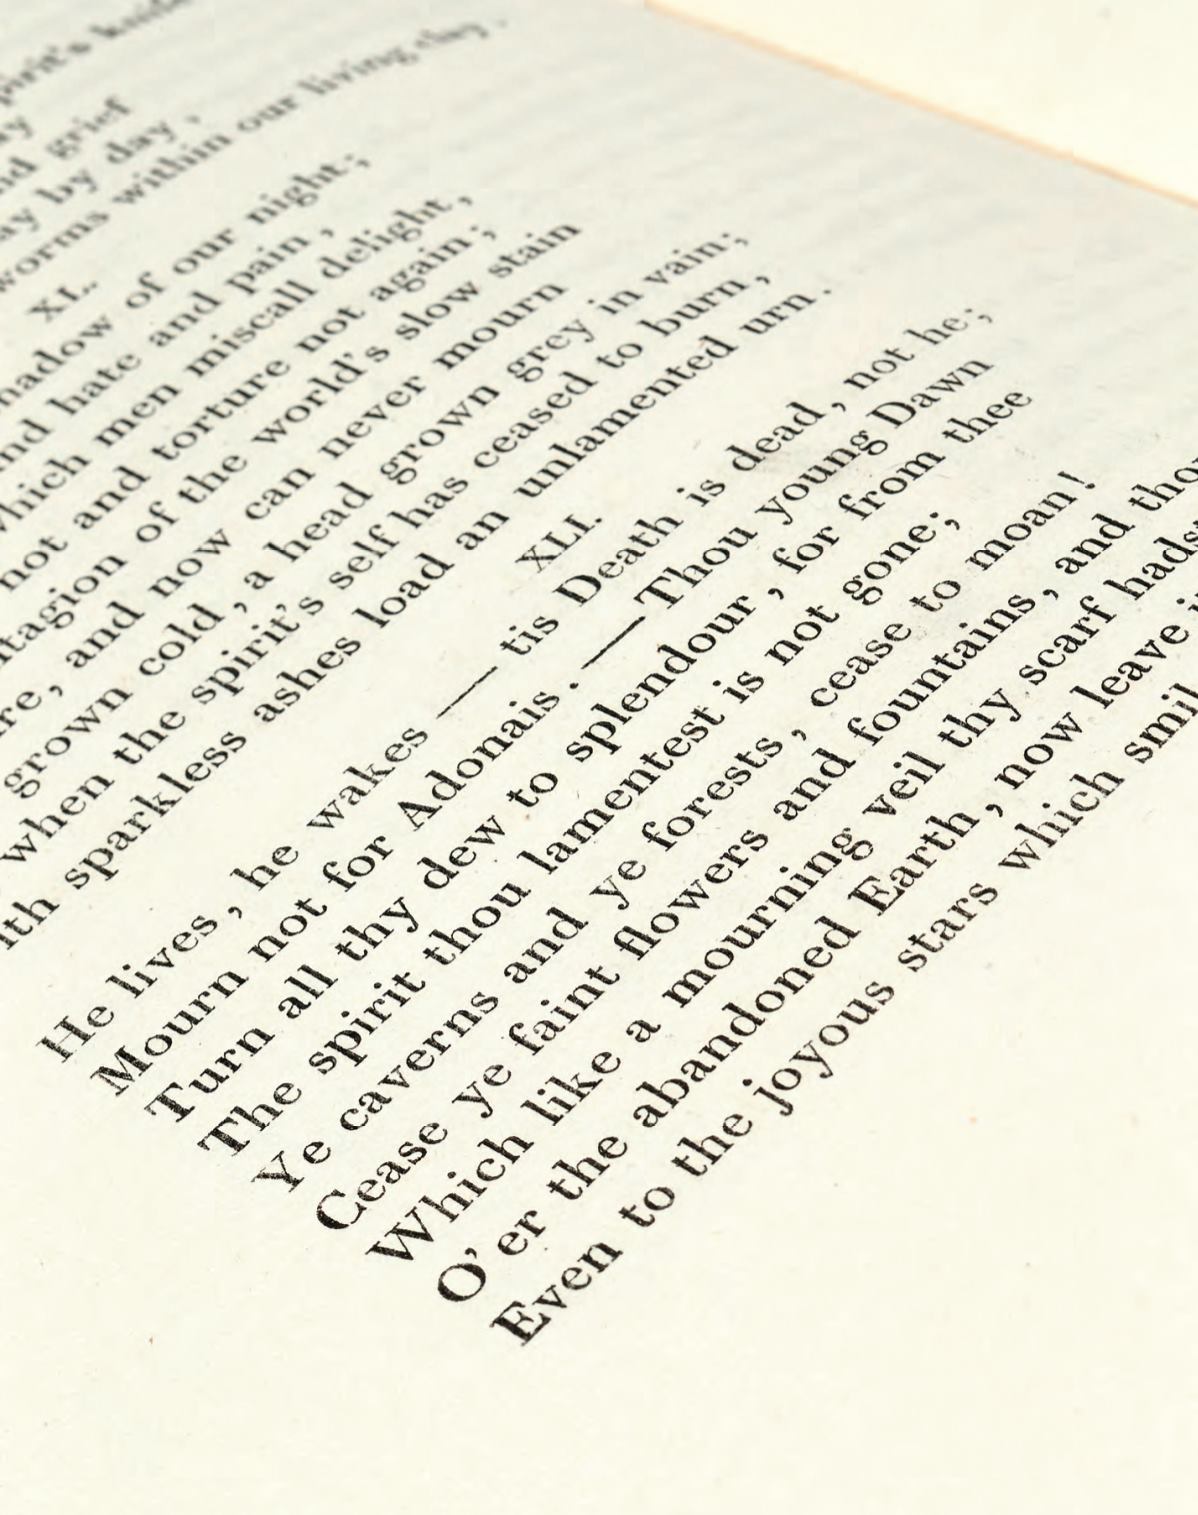 pirit's knife
ay
nd grief
ay by day,
worms within our living clay.
XL.
hadow of our night;
nd hate and pain,
which men miscall delight,
not and torture not again;
ntagion of the world's slow stain
re, and now can never mourn
grown cold, a head grown grey in vain;
when the spirit's self has ceased to burn,
ith sparkless ashes load an unlamented urn.
XLI.
He lives, he wakes — tis Death is dead, not he;
Mourn not for Adonais. — Thou young Dawn
Turn all thy dew to splendour, for from thee
The spirit thou lamentest is not gone;
Ye caverns and ye forests, cease to moan!
Cease ye faint flowers and fountains, and thou
Which like a mourning veil thy scarf hadst
O'er the abandoned Earth, now leave i
Even to the joyous stars which smil